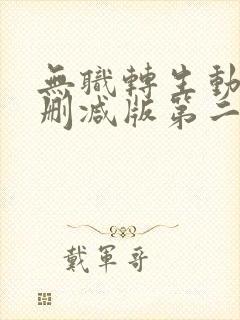 無職轉生動
刪减版第二
戴軍哥